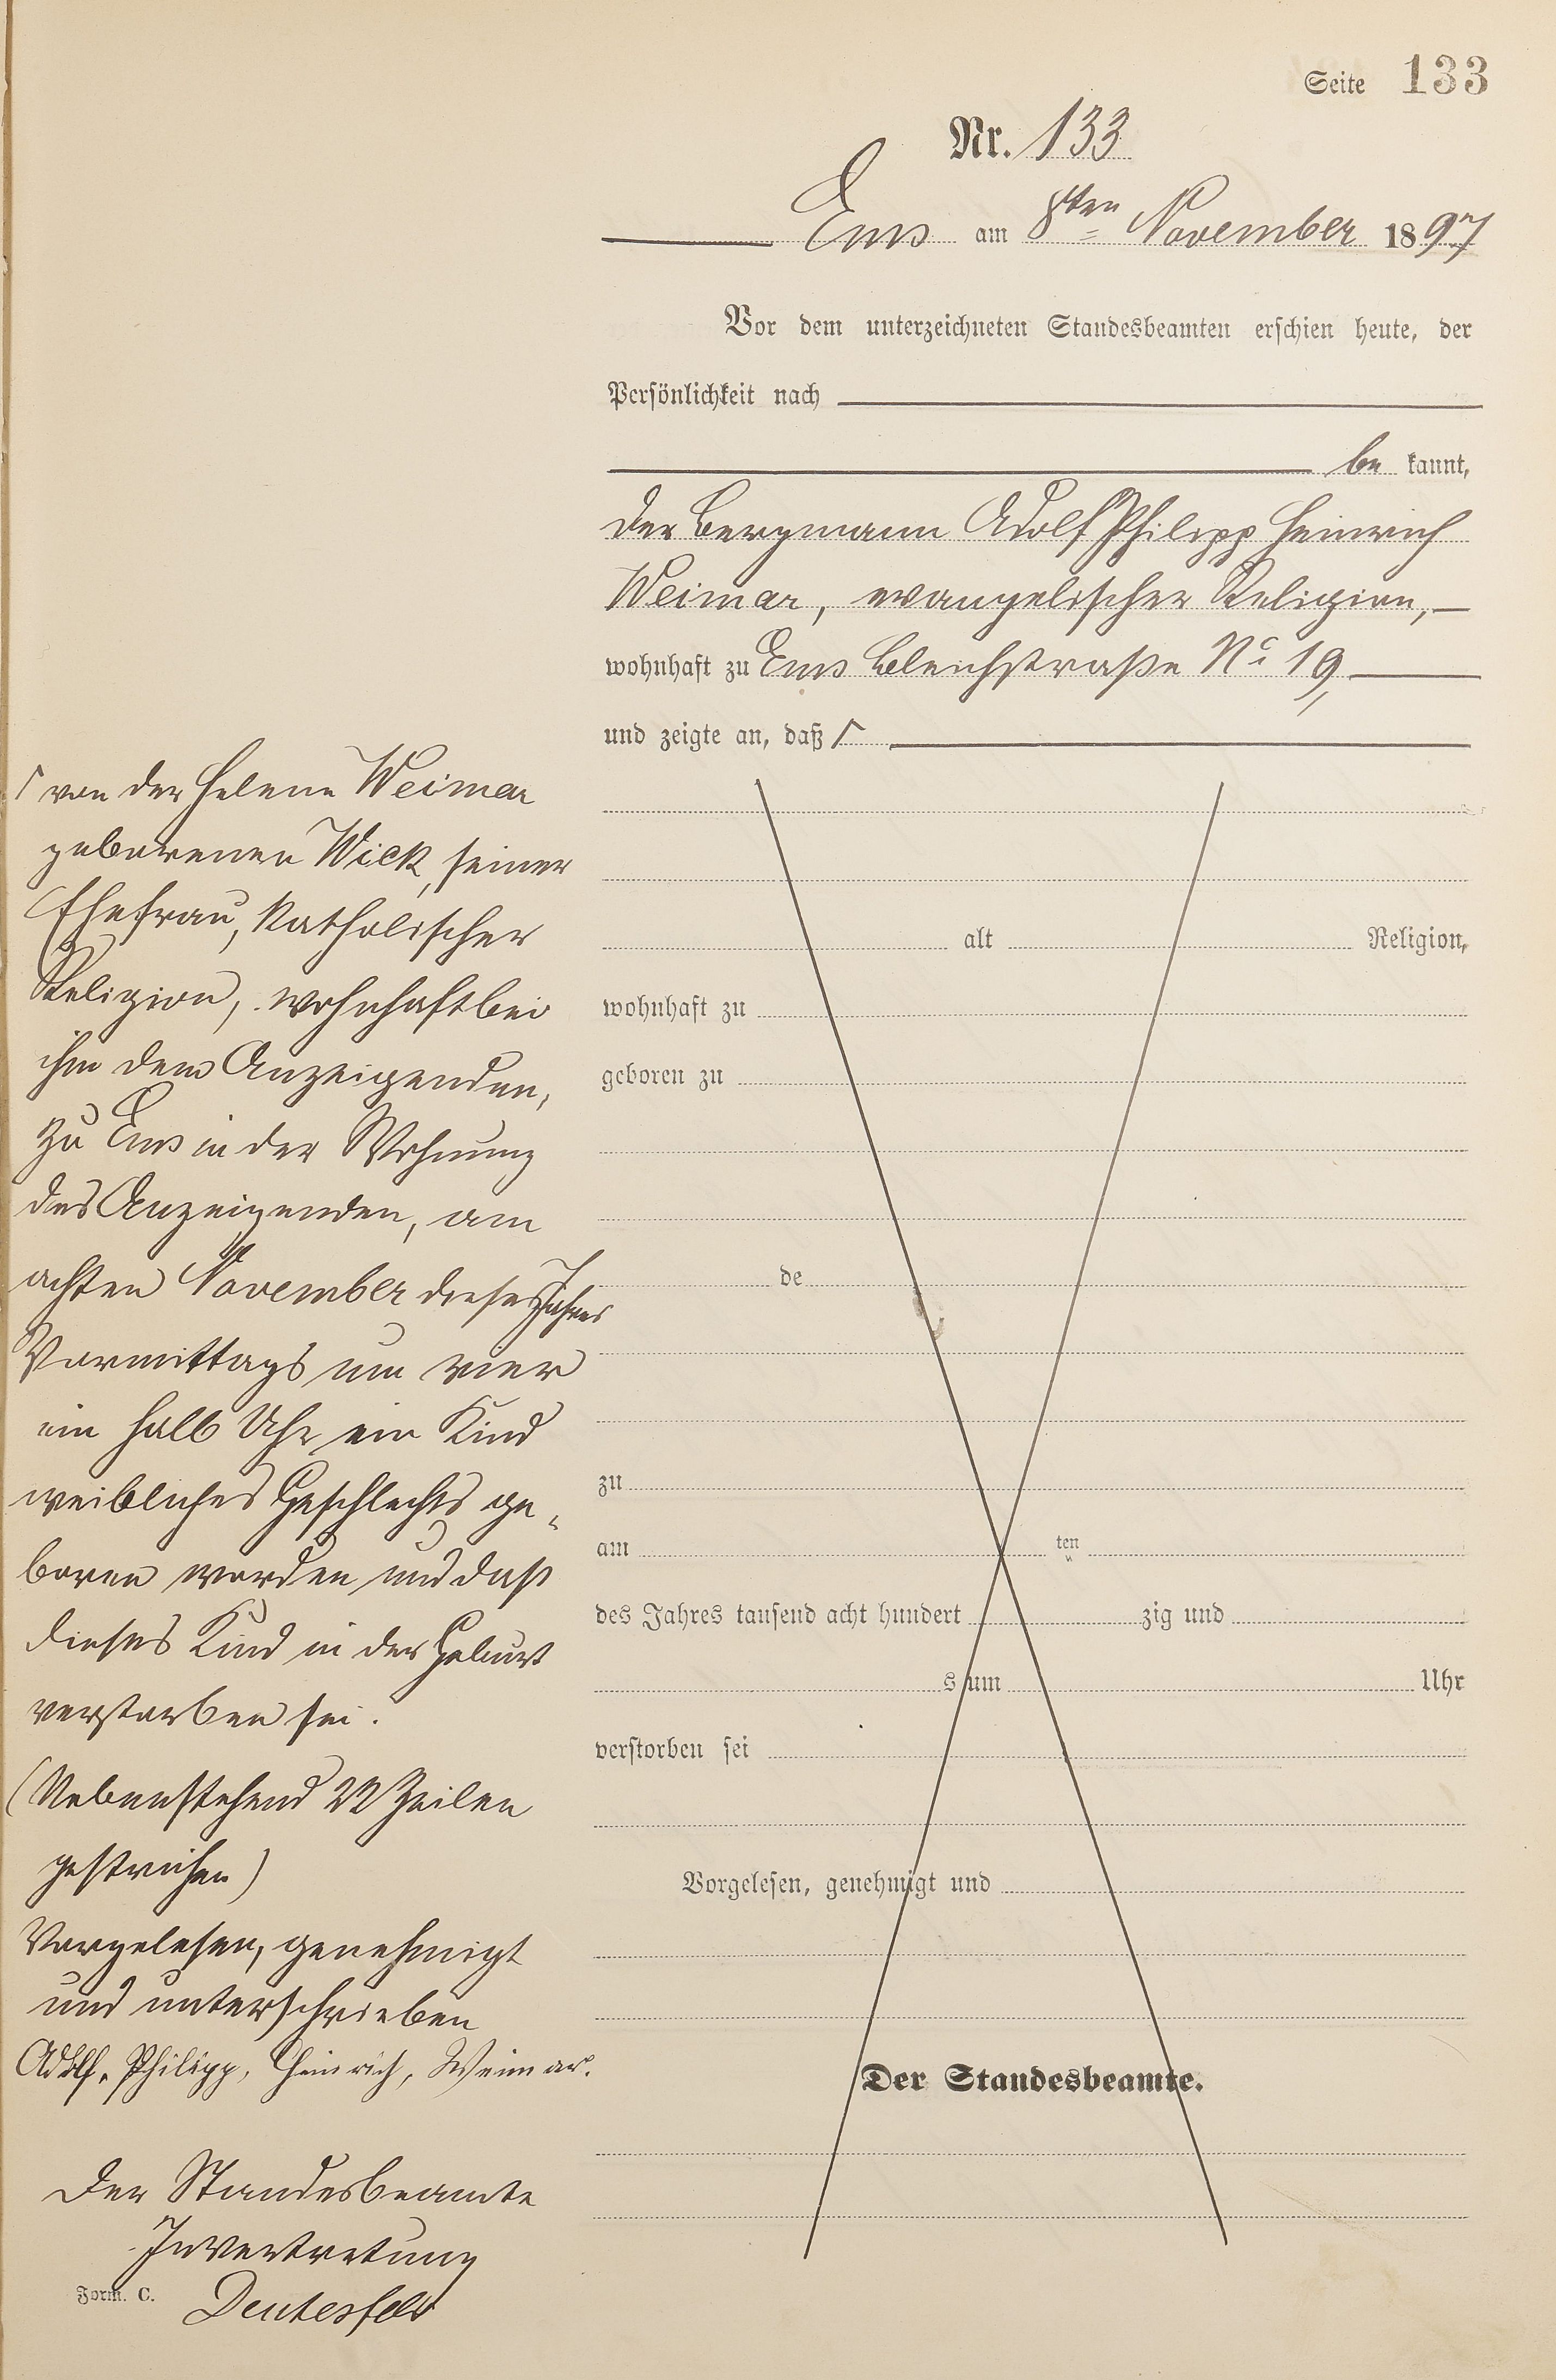 Seite 133
Nr. 133
Ems am 8ten November 1897
Vor dem unterzeichneten Standesbeamten erschien heute, der
Persönlichkeit nach
be kannt,
der Bergmann Adolf Philipp Heinrich
Weimar, evangelischer Religion,
wohnhaft zu Ems Bleichstraße No 19,
und zeigte an, daß Γ
Γ von der Helene Weimar
geborenen Wick, seiner
Ehefrau, katholischer
Religion, wohnhaft bei
ihm dem Anzeigenden,
zu Ems in der Wohnung
des Anzeigenden, am
achten November dieses Jahres
Vormittags um vier
ein halb Uhr ein Kind
weibliches Geschlechts ge-
boren worden und daß
dieses Kind in der Geburt
verstorben sei.
(Nebenstehend 22 Zeilen
gestrichen)
Vorgelesen, genehmigt
und unterschrieben
Adolf, Philipp, Heinrich, Weimar.
Der Standesbeamte
In Vertretung
Deutesfeld
Form. C.
alt Religion,
wohnhaft zu
geboren zu
de
zu
am ten
des Jahres tausend acht hundert zig und
s um Uhr
verstorben sei
Vorgelesen, genehmigt und
Der Standesbeamte.